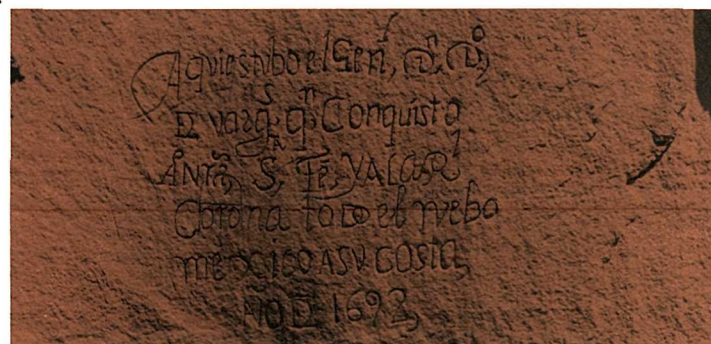 Aqui estubo el Genl, Dn. Do
De vargs, qn, Conquisto
Anra, Sta Fe, Y A La Rl
Corona toDo el nvebo
mexico A SV COSta,
Año De 1692,